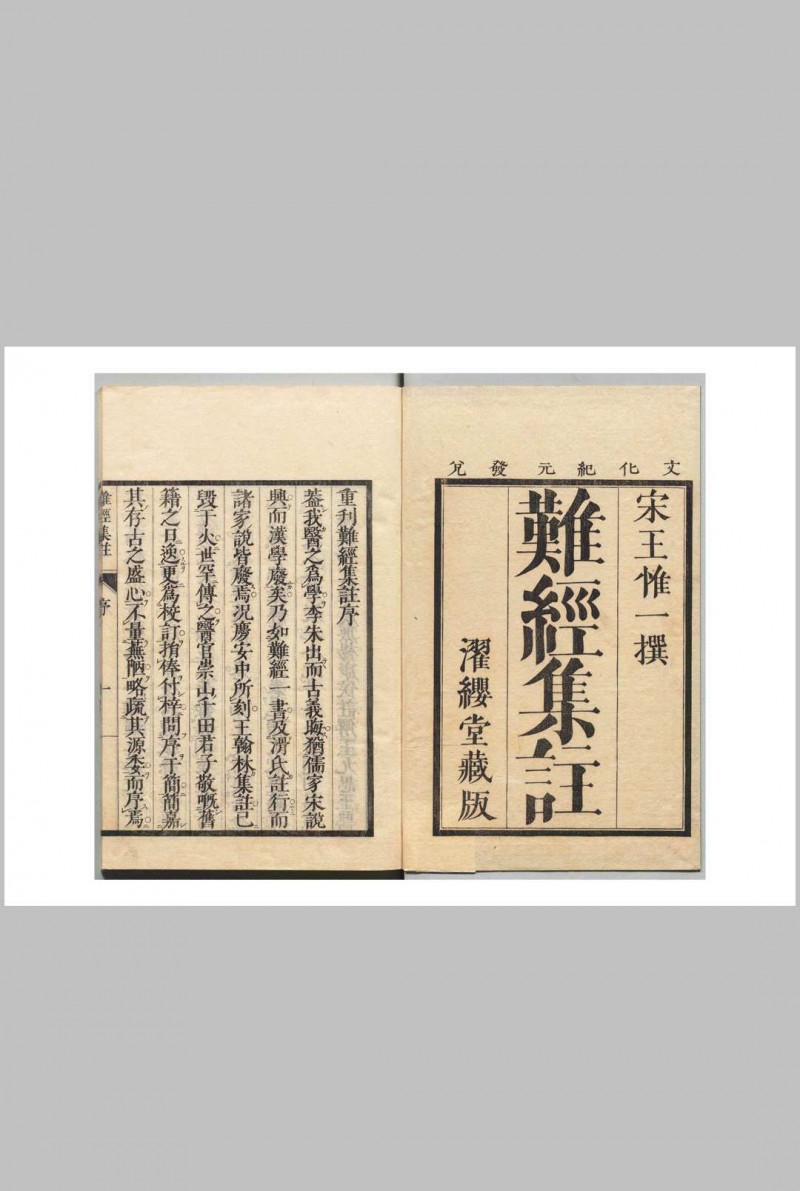 文化紀元發兌
宋王惟一撰
難經集註
濯纓堂藏版
重刊難經集註序
葢我醫之為學李朱出而古義晦猶儒家宋說
興而漢學廢矣乃如難經一書及滑氏註行而
諸家說皆廢焉况慶安中所刻王翰林集註已
毀于火世罕傳之醫官崇山千田君子敬嘅舊
籍之日逸更爲校訂捐俸付梓問序于簡簡嘉
其存古之盛心不量蕪陋略疏其源委而序焉
難經集註
序
一